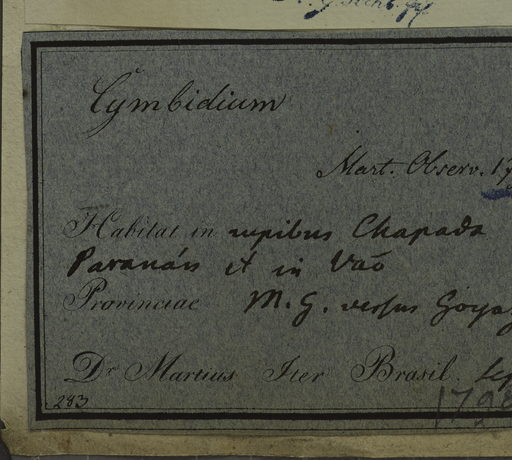 Cymbidium
Mart. Observ. 17
Habitat in rupibus Chapada
Paranáis et in Vaõ
Provinciae M. G. versus Goya
Dr Martius Iter Brasil. Sep
283
179